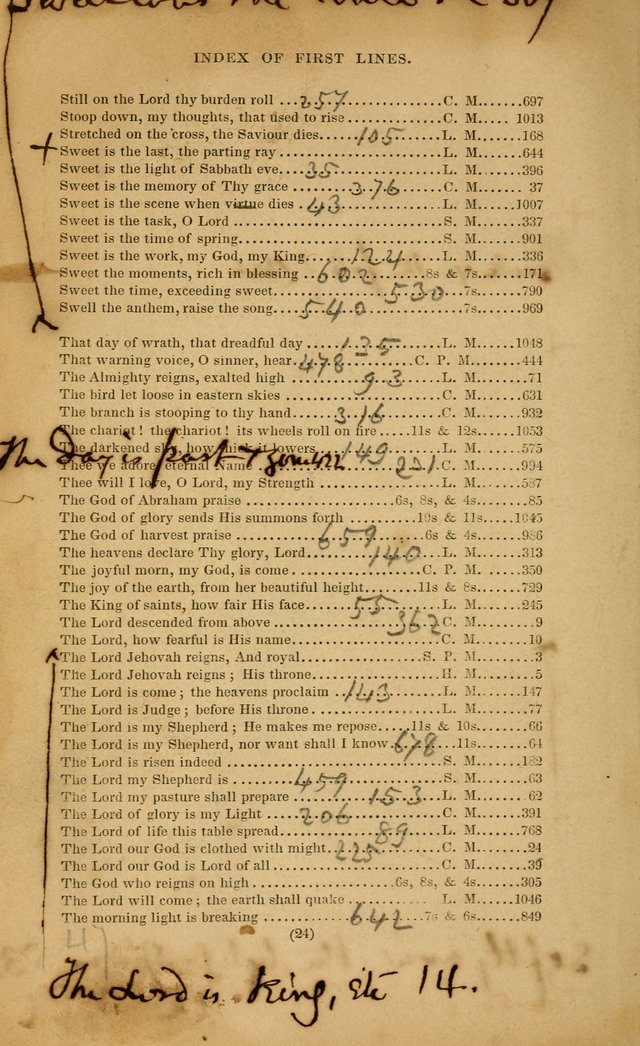 INDEX OF FIRST LINES.
Still on the Lord thy burden roll ...257...............C. M.......697
Stoop down, my thoughts, that used to rise..............C. M....... 1013
Stretched on the cross, the Saviour dies......105......L. M.......168
Sweet is the last, the parting ray......................L. M.......644
Sweet is the light of Sabbath eve....35................L. M.......396
Sweet is the memory of Thy grace........376............C. M....... 37
Sweet is the scene when virtue dies ..43...............L. M.......1007
Sweet is the task, O Lord ..............................S. M.......337
Sweet is the time of spring.............................S. M.......901
Sweet is the work, my God, my King......124............L. M.......336
Sweet the moments, rich in blessing ..682.........8s & 7s.......171
Sweet the time, exceeding sweet..............530......7s.......790
Swell the anthem, raise the song....540................7s.......969
That day of wrath, that dreadful day .....125..........L. M.......1048
That warning voice, O sinner, hear.478............C. P. M.......444
The Almighty reigns, exalted high ........93...........L. M.......71
The bird let loose in eastern skies ....................C. M.......631
The branch is stooping to thy hand......316............C. M.......932
The chariot! the chariot! its wheels roll on fire.....11s & 12s....1053
The darkened sky, how thick it lowers....149...........L. M.......575
The Day is past & gone 422
Thee we adore, eternal Name ..............221.C. M.......994
Thee will I love, O Lord, my Strength ..................L. M.......587
The God of Abraham praise ....................6s, 8s, & 4s.......85
The God of glory sends His summons forth ..........10s & 11s....1045
The God of harvest praise ............659.........6s & 4s.......986
The heavens declare Thy glory, Lord.........140........L. M.......313
The joyful morn, my God, is come .................C. P. M. .......350
The joy of the earth, from her beautiful height........11s & 8s.......729
The King of saints, how fair His face......55..........L. M.......245
The Lord descended from above ..............362C. M.......9
The Lord, how fearful is His name.......................C. M.......10
The Lord Jehovah reigns, And royal................S. P. M.......3
The Lord Jehovah reigns; His throne.....................H. M.......5
The Lord is come; the heavens proclaim ..143..........L. M.......147
The Lord is Judge; before His throne....................L. M.......77
The Lord is my Shepherd; He makes me repose.....11s & 10s.......66
The Lord is my Shepherd, nor want shall I know.678...11s.......64
The Lord is risen indeed ...............................S. M.......182
The Lord my Shepherd is ........459....................S. M.......63
The Lord my pasture shall prepare .........153.........L. M.......62
The Lord of glory is my Light ....206..................C. M.......391
The Lord of life this table spread............89........L. M.......768
The Lord our God is clothed with might.225.............C. M.......24
The Lord our God is Lord of all.........................C. M.......39
The God who reigns on high ...................6s, 8s, & 4s.......305
The Lord will come; the earth shall quake...............L. M.......1046
The morning light is breaking ............642.....7s & 6s.......849
(24)
47
The Lord is King, Etc 14.